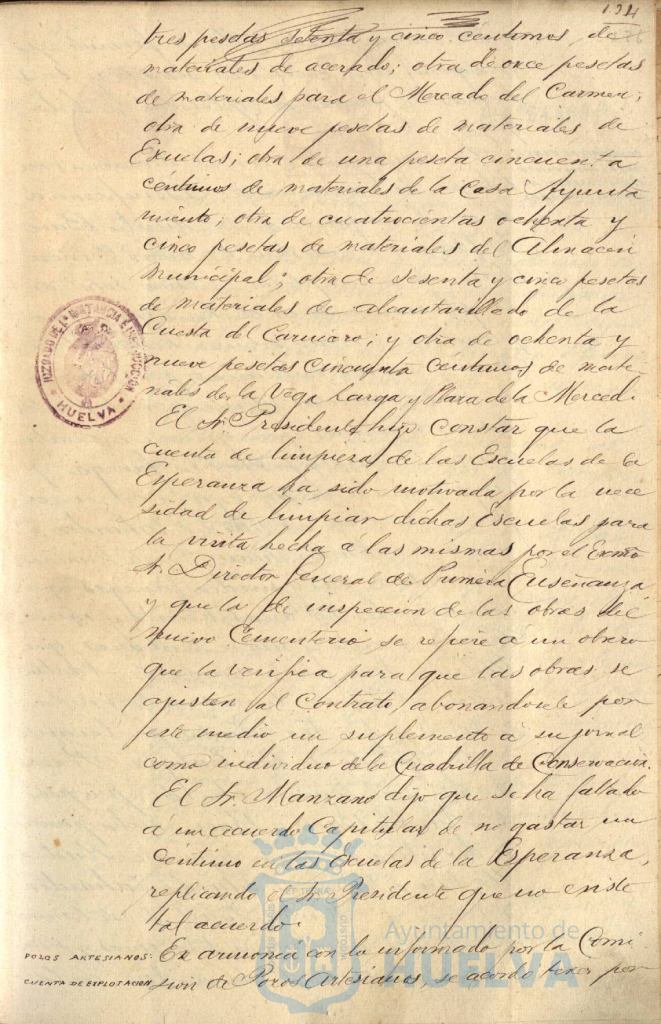 134
tres pesetas setenta y cinco céntimos de
materiales de acerado; otra de once pesetas
de materiales para el Mercado del Carmen;
otra de nueve pesetas de materiales de
Escuelas; otra de una peseta cincuenta
céntimos de materiales de la Casa Ayunta
miento; otra de cuatrocientas ochenta y
cinco pesetas de materiales del Almacén
Municipal; otra de sesenta y cinco pesetas
de materiales de alcantarillado de la
Cuesta del Carnicero; y otra de ochenta y
nueve pesetas cincuenta céntimos de mate-
riales de la Vega Larga y Plaza de la Merced.
El Sr. Presidente hizo constar que la
cuenta de limpieza de las Escuelas de la
Esperanza ha sido motivada por la nece
sidad de limpiar dichas Escuelas para
la visita hecha á las mismas por el Exmo
Sr. Director General de Primera Enseñanza
y que la de inspección de las obras del
nuevo Cementerio se refiere á un obrero
que la verifica para que las obras se
ajusten al contrato abonandosele por
este medio un suplemento á su jornal
como individuo de la Cuadrilla de Conservación.
El Sr. Manzano dijo que se ha faltado
á un acuerdo Capitular de no gastar un
céntimo en las Escuelas de la Esperanza,
replicando el Sr. Presidente que no existe
tal acuerdo.
POZOS ARTESIANOS: En armonía con lo informado por la Comi
CUENTA DE EXPLOTACION sion de Pozos Artesianos, se acordó tener por
JUZGADO DE 1ª INSTANCIA E INSTRUCCION
HUELVA
Ayuntamiento de
HUELVA